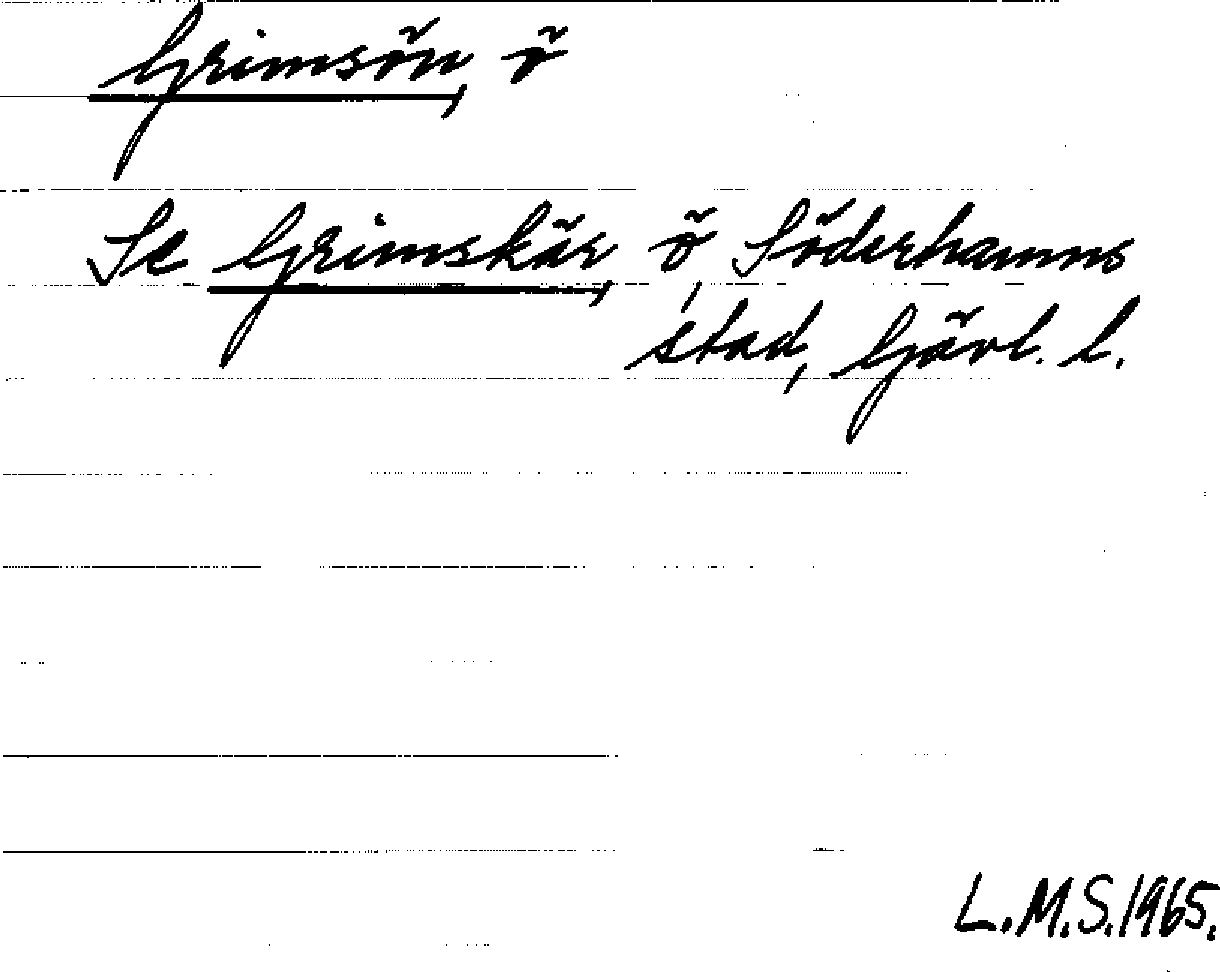 Grimsön, ö
Se Grimskär, ö, Söderhamns
stad, Gävl. l.
L.M.S. 1965.